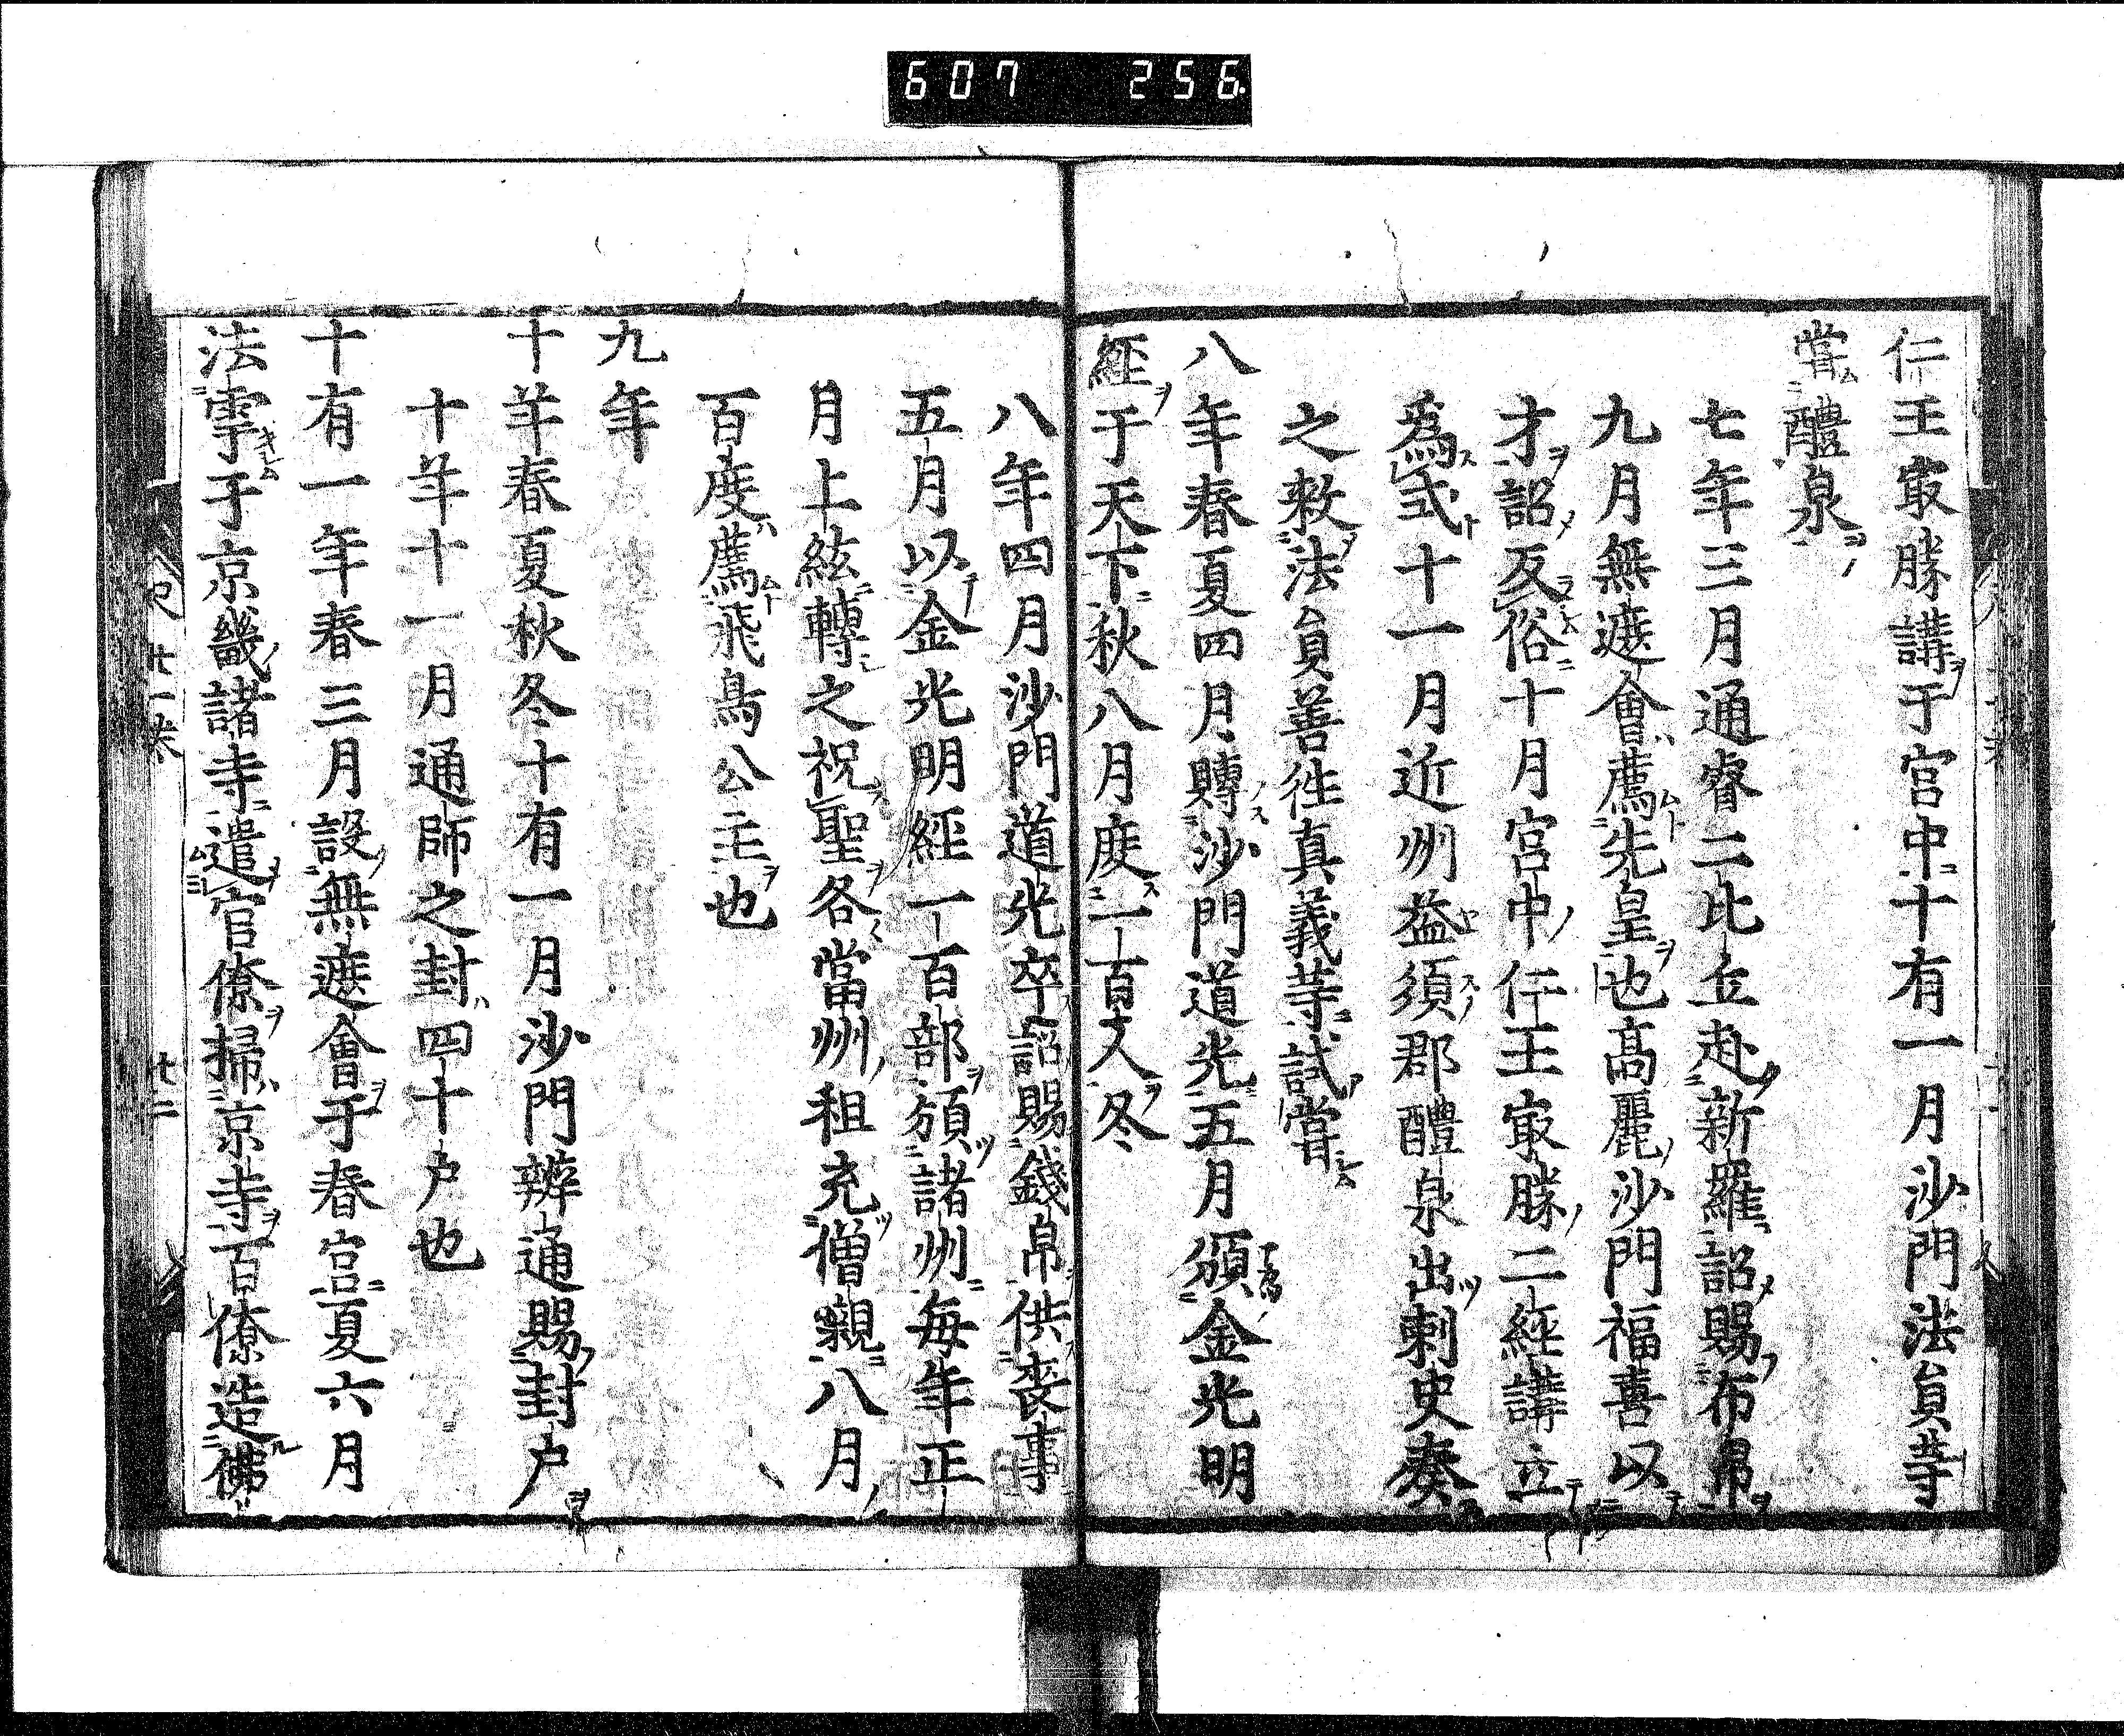 607 256
仁王㝡勝講于宮中十有一月沙門法員等
嘗醴泉
七年三月通睿二比丘赴新羅詔賜布帛
九月無遮會薦先皇也高麗沙門福喜以
才詔反俗十月宮中仁王㝡勝二經講立
爲式十一月近州益須郡醴泉出刺史奏
之敕法員善徃真義等試嘗
八年春夏四月賻沙門道光五月頒金光明
經于天下秋八月度一百人冬
八年四月沙門道光卒詔賜錢帛供丧事
五月以金光明經一百部頒諸州毎年正
月上絃轉之祝聖各當州租充僧䞋八月
百度薦飛鳥公主也
九年
十年春夏秋冬十有一月沙門辨通賜封户
十年十一月通師之封四十户也
十有一年春三月設無遮會于春宮夏六月
法雩于京畿諸寺遣官僚掃京寺百僚造佛
廿一卷 廿二